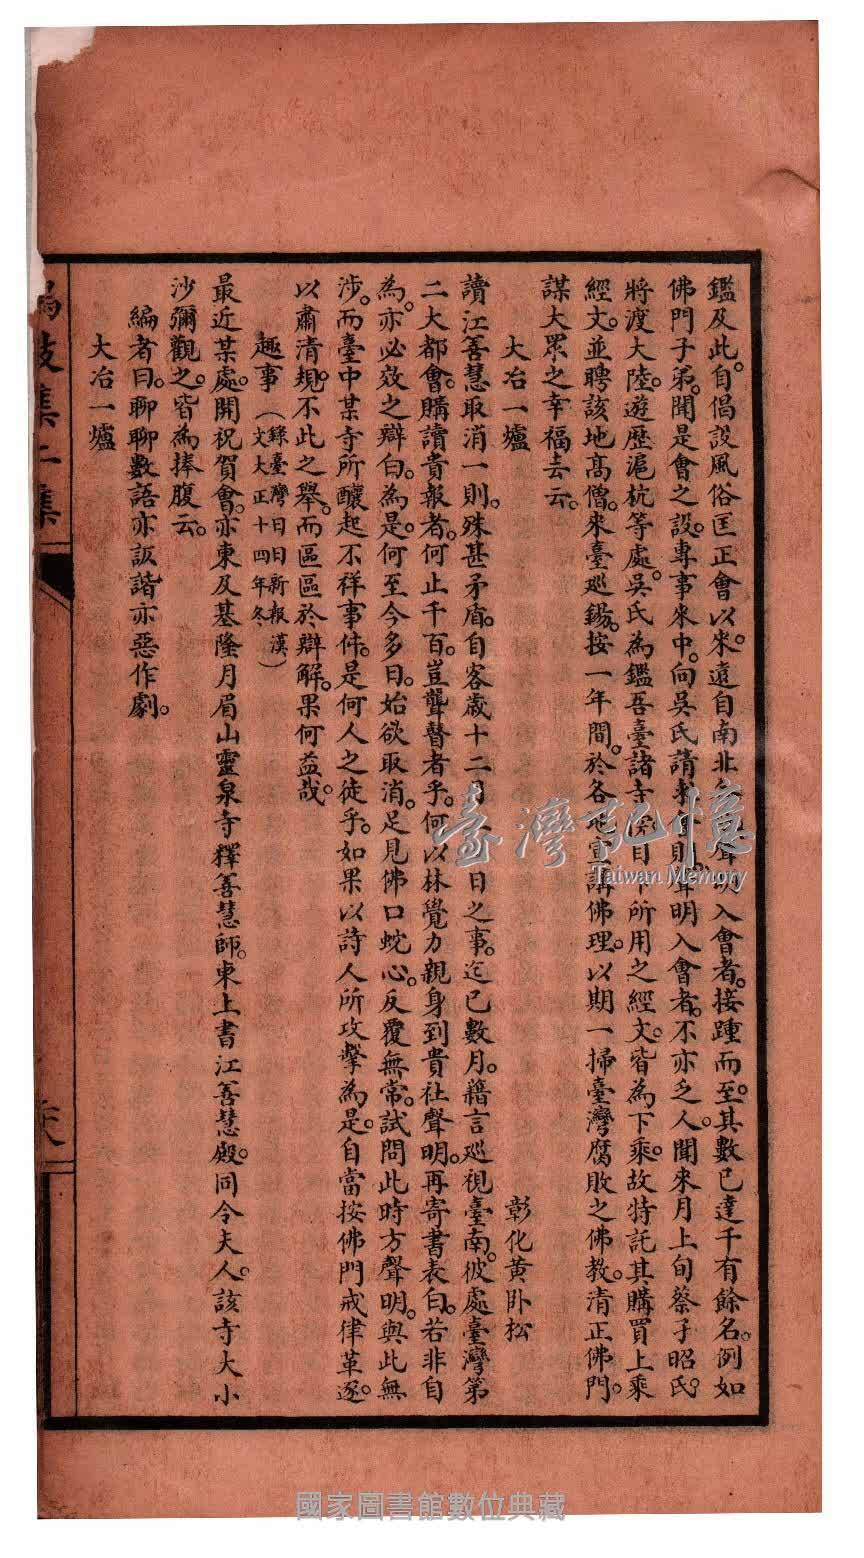 鑑及此。自倡設風俗匡正會以來。遠自南北聲明入會者。接踵而至。其數已達千有餘名。例如
佛門子弟。聞是會之設。專事來中。向吳氏請求則聲明入會者。不亦乏人。聞來月上旬蔡子昭氏。
將渡大陸。遊歷滬杭等處。吳氏為鑑吾臺諸寺院目下所用之經文。皆為下乘。故特託其購買上乘
經文。並聘該地高僧。來臺巡錫。按一年間。於各地宣講佛理。以期一掃臺灣腐敗之佛教。清正佛門。
謀大眾之幸福去云。
大冶一爐 彰化黃卧松
讀江善慧取消一則。殊甚矛盾。自客歲十二月日之事。迄已數月。藉言巡視臺南。彼處臺灣第
二大都會。購讀貴報者。何止千百。豈聾瞽者乎。何以林覺力親身到貴社聲明。再寄書表白。若非自
為。亦必效之辯白。為是。何至今多日。始欲取消。足見佛口蛇心。反覆無常。試問此時方聲明。與此無
涉。而臺中某寺所釀起不祥事件。是何人之徒乎。如果以詩人所攻擊為是。自當按佛門戒律革逐。
以肅清規。不此之舉。而區區於辯解。果何益哉。
趣事(錄臺灣日日新報漢文大正十四年冬、)
最近某處。開祝賀會。亦東及基隆月眉山靈泉寺釋善慧師。東上書江善慧殿。同令夫人。該寺大小
沙彌觀之。皆為捧腹云。
編者曰。聊聊數語亦詼諧亦惡作劇。
大冶一爐
鳴鼓集二集
臺灣記憶
Taiwan Memory
國家圖書館數位典藏